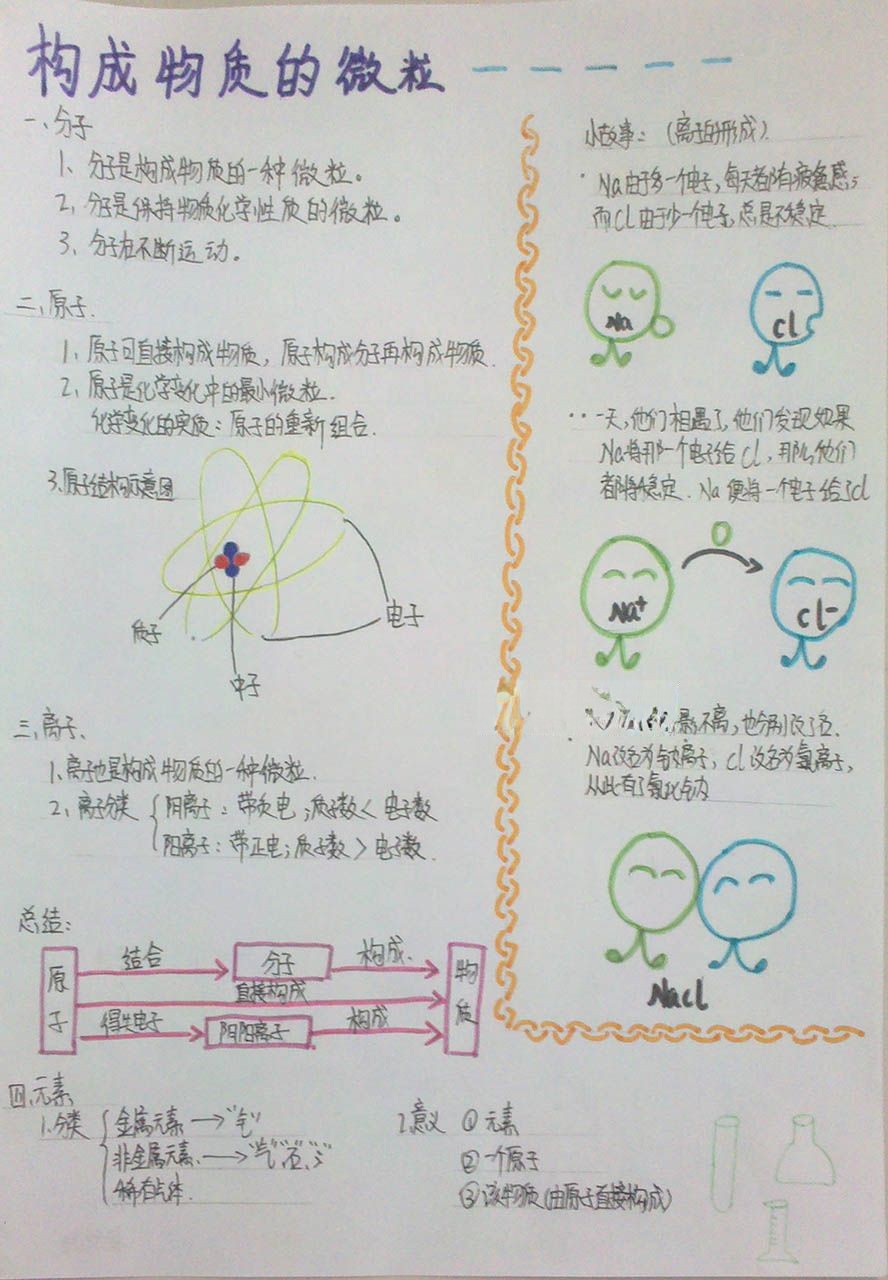 构成物质的微粒
一、分子
1、分子是构成物质的一种微粒。
2、分子是保持物质化学性质的微粒。
3、分子在不断运动。
二、原子.
1、原子可直接构成物质，原子构成分子再构成物质.
2、原子是化学变化中的最小微粒.
化学变化的实质：原子的重新组合.
3、原子结构示意图
质子
中子
电子
三、离子、
1、离子也是构成物质的一种微粒.
2、离子分类
阳离子：带负电；质子数＜电子数
阳离子：带正电；质子数＞电子数.
总结：
原子
结合
分子
构成.
直接构成
得失电子
阴阳离子
构成
物质
四、元素
1、分类
金属元素→"钅"
非金属元素→"气""石""氵"
稀有气体.
2、意义 ①元素
②一个原子
③该物质(由原子直接构成)
小故事：(离子的形成)
Na由于多一个电子，每天都有疲惫感；
而Cl由于少一个电子，总是不稳定.
Na
Cl
一天，他们相遇了，他们发现如果
Na将那一个电子给Cl，那么他们
都将稳定. Na便将一个电子给了Cl
Na⁺
Cl-
不离，也分别改了名.
Na改名为钠离子，Cl改名为氯离子，
从此有了氯化钠
Nacl